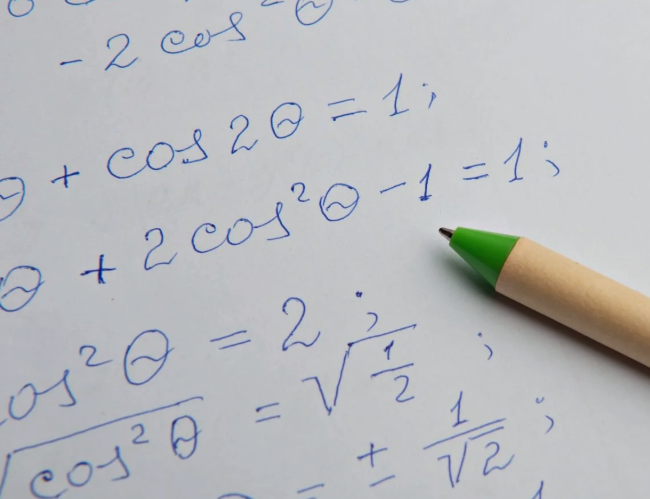 - 2 cos² θ
θ + cos 2θ = 1;
θ + 2 cos² θ - 1 = 1;
cos² θ = 2;
√cos² θ = √1/2;
= ± 1/√2;